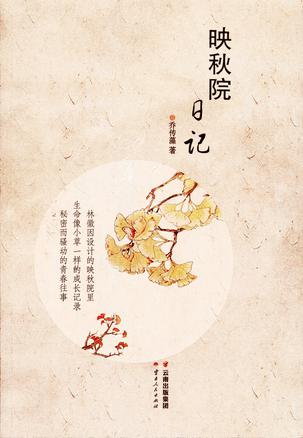 映秋院
日记
乔传藻 著
林徽因设计的映秋院里
生命像小草一样的成长记录
秘密而骚动的青春往事
云南出版集团
云南人民出版社